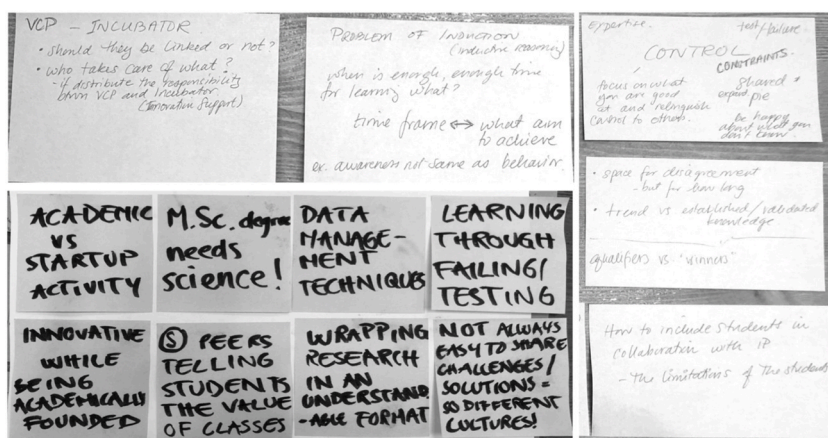 VCP – INCUBATOR
• should they be linked or not?
• who takes care of what?
- if distribute the responsibility
btwn VCP and Incubator
(Innovation Support)
PROBLEM OF INDUCTION
(inductive reasoning)
when is enough, enough time
for learning what?
time frame ↔ what aim
to achieve
ex. awareness not same as behavior
expertise.
test/failure
CONTROL
CONSTRAINTS.
focus on what
you are good
at and relinquish
control to others.
shared
expand pie
be happy
about what you
don't know.
• space for disagreement
- but for how long
• trend vs established/validated
knowledge
qualifiers vs "winners"
How to include students in
collaboration with iP
- The limitations of the students
ACADEMIC
VS
STARTUP
ACTIVITY
M.Sc. degree
needs
science!
DATA
MANAGE-
MENT
TECHNIQUES
LEARNING
THROUGH
FAILING/
TESTING
INNOVATIVE
WHILE
BEING
ACADEMICALLY
FOUNDED
Ⓢ PEERS
TELLING
STUDENTS
THE VALUE
OF CLASSES
WRAPPING
RESEARCH
IN AN
UNDERSTAND
-ABLE FORMAT
NOT ALLWAYS
EASY TO SHARE
CHALLENGES/
SOLUTIONS =
SO DIFFERENT
CULTURES!